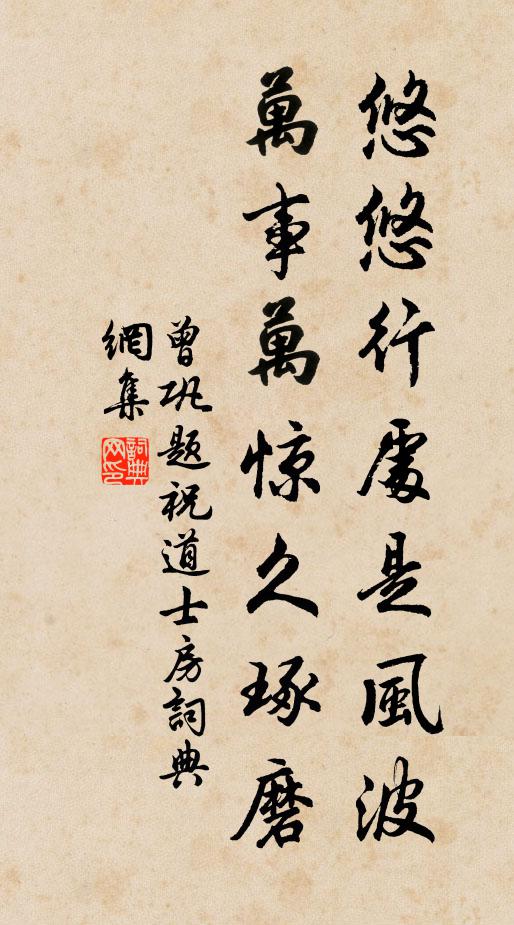 悠悠行處是風波
萬事萬惊久琢磨
曾巩題祝道士房詞典
網集
詞典网印